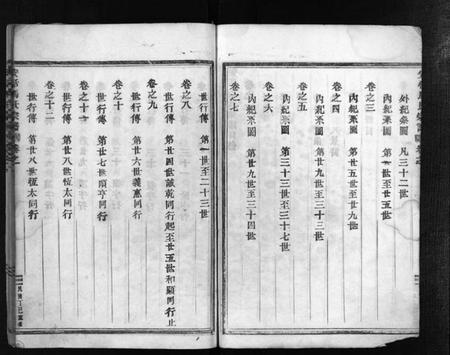 外紀系圖 凡三十二世
卷之三
內紀系圖 第一世至廿五世
卷之四
內紀系圖 第廿五世至廿九世
卷之五
內紀系圖 第廿九世至三十三世
卷之六
內紀系圖 第三十三世至三十七世
卷之七
內紀系圖 第廿九世至三十四世
世行傳 第一世至二十三世
卷之八
世行傳 第廿四世誠乾同行起至廿五世和顯同行止
卷之九
世行傳 第廿六世義萬同行
卷之十
世行傳 第廿七世順亨同行
卷之十一
世行傳 第廿八世恆太同行
卷之十二
世行傳 第廿八世恆太同行